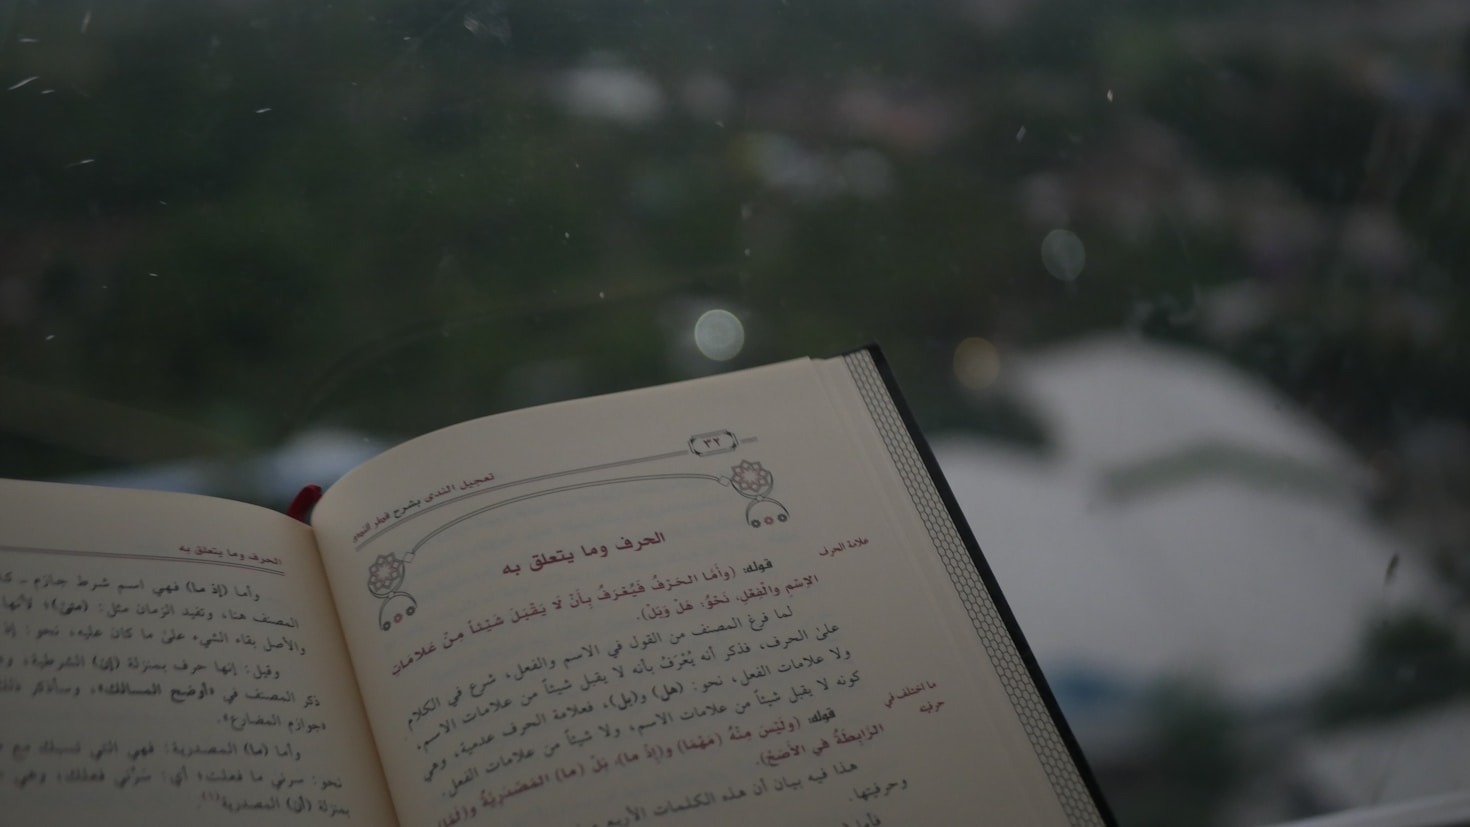 ٣٢
تعجيل الندى بشرح قطر الندى
الحرف وما يتعلق به
علامة الحرف
قوله: (وَأَمَّا الحَرْفُ فَيُعْرَفُ بِأَنْ لَا يَقْبَلَ شَيْئاً مِنْ عَلَامَاتِ
الِاسْمِ وَالْفِعْلِ، نَحْوُ: هَلْ وَبَلْ).
لما فرغ المصنف من القول في الاسم والفعل، شرع في الكلام
على الحرف، فذكر أنه يُعْرَفُ بأنه لا يقبل شيئاً من علامات الاسم،
ولا علامات الفعل، نحو: (هل) و(بل)، فعلامة الحرف عدمية، وهي
كونه لا يقبل شيئاً من علامات الاسم، ولا شيئاً من علامات الفعل.
ما اختلف في
حرفيته
قوله: (وَلَيْسَ مِنْهُ (مَهْمَا) و(إِذْ ما)، بَلْ (ما) المَصْدَرِيَّةُ و(لَمَّا)
الرَّابِطَةُ في الأَصَحِّ).
هذا فيه بيان أن هذه الكلمات الأربع
وحرفيتها.
الحرف وما يتعلق به
وأما (إذ ما) فهي اسم شرط جازم
المصنف هنا، وتفيد الزمان مثل: (متى)؛ لأنها
والأصل بقاء الشيء على ما كان عليه، نحو: إذ
وقيل: إنها حرف بمنزلة (إن) الشرطية،
ذكر المصنف في «أوضح المسالك»، وسأذكر ذلك
«جوازم المضارع».
وأما (ما) المصدرية: فهي التي تسبك مع
نحو: سرني ما فعلت؛ أي: سَرَّني فعلك، وهي
بمنزلة (أن) المصدرية(١).